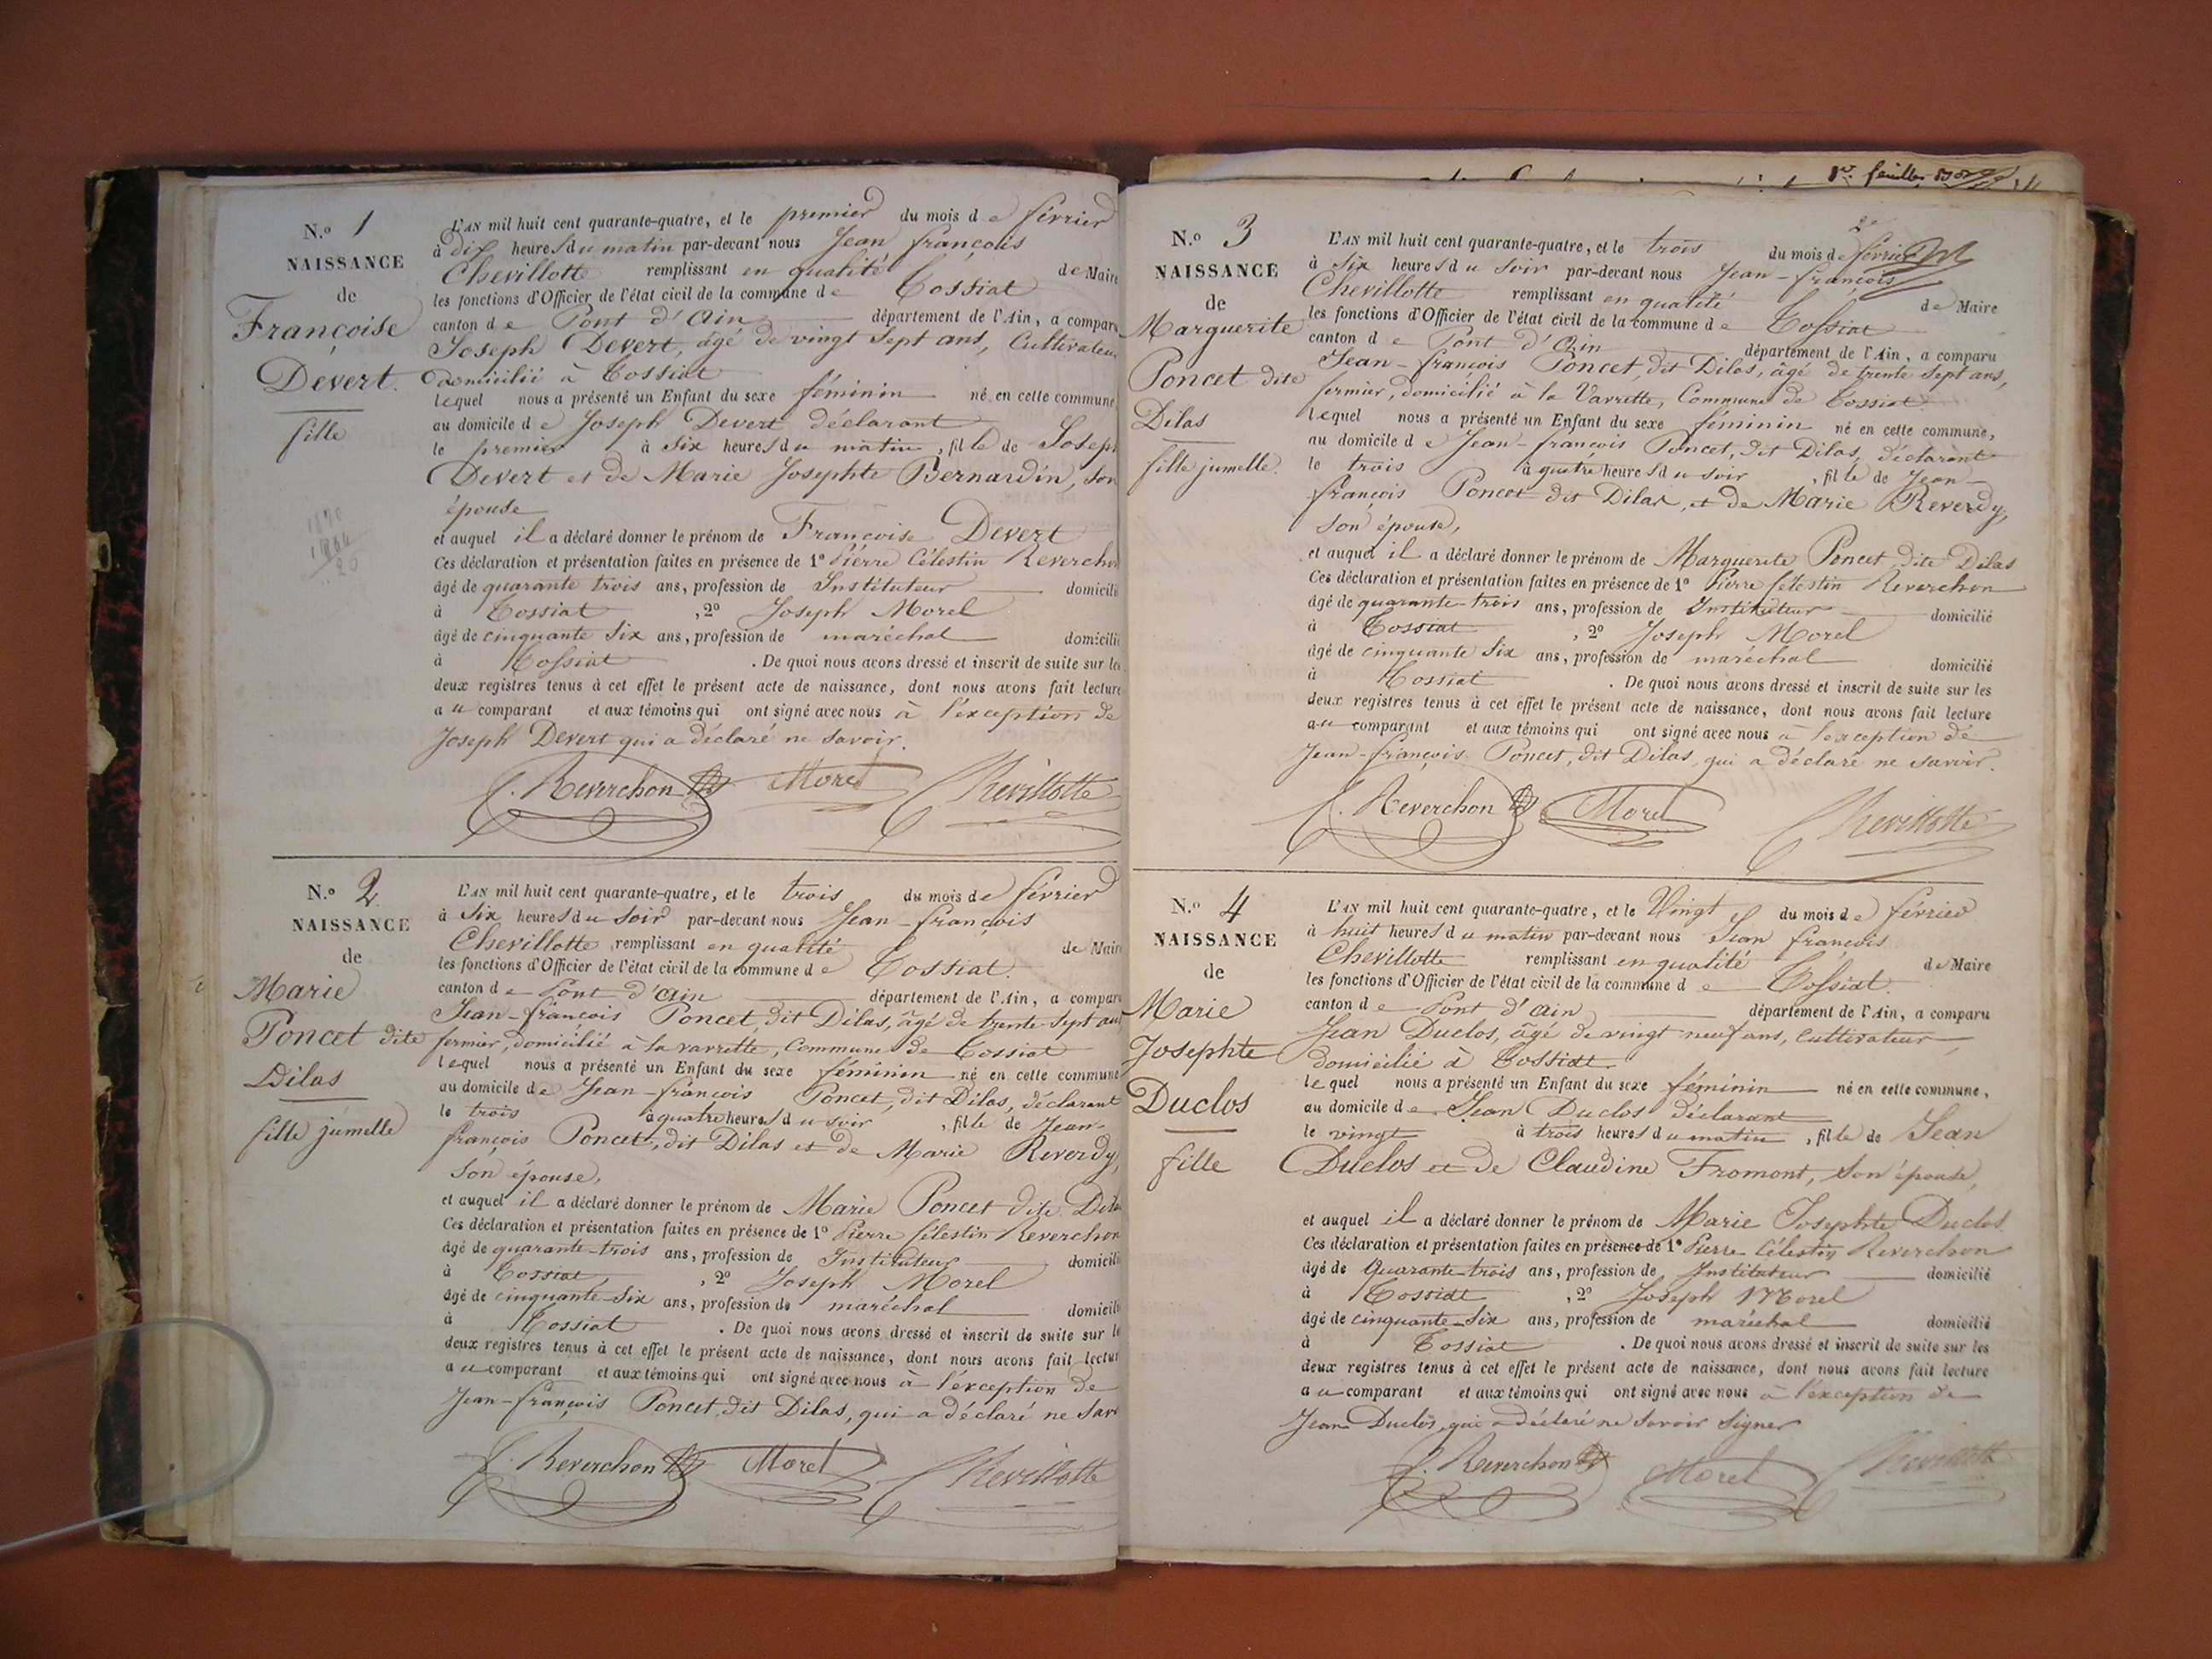 N.º 1
NAISSANCE
de
Françoise
Devert.
fille
L'AN mil huit cent quarante-quatre, et le premier du mois de février
à dix heures du matin par-devant nous Jean françois
Chevillotte remplissant en qualité de Maire
les fonctions d'Officier de l'état civil de la commune de Tossiat
canton de Pont d'Ain département de l'Ain, a compar
Joseph Devert, âgé de vingt sept ans, Cultivateur
domicilié à Tossiat
lequel nous a présenté un Enfant du sexe féminin né en cette commune
au domicile de Joseph Devert déclarant
le premier à Six heures du matin, fille de Joseph
Devert et de Marie Josephte Bernardin, son
épouse
et auquel il a déclaré donner le prénom de Françoise Devert
Ces déclaration et présentation faites en présence de 1º Pierre Célestin Reverchon
âgé de quarante trois ans, profession de Instituteur domicilié
à Tossiat, 2º Joseph Morel
âgé de cinquante Six ans, profession de maréchal domicilié
à Tossiat. De quoi nous avons dressé et inscrit de suite sur les
deux registres tenus à cet effet le présent acte de naissance, dont nous avons fait lecture
au comparant et aux témoins qui ont signé avec nous à l'exception de
Joseph Devert qui a déclaré ne savoir.
C. Reverchon Morel Chevillotte
N.º 2
NAISSANCE
de
Marie
Poncet dite
Dilas
fille jumelle
L'AN mil huit cent quarante-quatre, et le trois du mois de février
à Six heures du Soir par-devant nous Jean-françois
Chevillotte remplissant en qualité de Maire
les fonctions d'Officier de l'état civil de la commune de Tossiat.
canton de Pont d'Ain département de l'Ain, a compar
Jean-françois Poncet, dit Dilas, âgé de trente-sept ans
fermier, domicilié à la varrette, Commune de Tossiat
lequel nous a présenté un Enfant du sexe féminin né en cette commune
au domicile de Jean-françois Poncet, dit Dilas, déclarant
le trois à quatre heures du soir, fille de Jean-
françois Poncet, dit Dilas et de Marie Reverdy,
Son épouse,
et auquel il a déclaré donner le prénom de Marie Poncet dite Dilas
Ces déclaration et présentation faites en présence de 1º Pierre Célestin Reverchon
âgé de quarante-trois ans, profession de Instituteur domicilié
à Tossiat, 2º Joseph Morel
âgé de cinquante-Six ans, profession de maréchal domicilié
à Tossiat. De quoi nous avons dressé et inscrit de suite sur le
deux registres tenus à cet effet le présent acte de naissance, dont nous avons fait lectur
au comparant et aux témoins qui ont signé avec nous à l'exception de
Jean-françois Poncet, dit Dilas, qui a déclaré ne Savo
C. Reverchon Morel Chevillotte
N.º 3
NAISSANCE
de
Marguerite
Poncet dite
Dilas
fille jumelle.
L'AN mil huit cent quarante-quatre, et le trois du mois de février
à Six heures du soir par-devant nous Jean-françois
Chevillotte remplissant en qualité de Maire
les fonctions d'Officier de l'état civil de la commune de Tossiat
canton de Pont d'Ain département de l'Ain, a comparu
Jean-françois Poncet, dit Dilas, âgé de trente Sept ans,
fermier, domicilié à la Varrette, Commune de Tossiat.
lequel nous a présenté un Enfant du sexe féminin né en cette commune,
au domicile de Jean-françois Poncet, dit Dilas, déclarant
le trois à quatre heures du soir, fille de Jean-
françois Poncet dit Dilas, et de Marie Reverdy,
Son épouse,
et auquel il a déclaré donner le prénom de Marguerite Poncet, dite Dilas
Ces déclaration et présentation faites en présence de 1º Pierre Célestin Reverchon
âgé de quarante-trois ans, profession de Instituteur domicilié
à Tossiat, 2º Joseph Morel
âgé de cinquante Six ans, profession de maréchal domicilié
à Tossiat. De quoi nous avons dressé et inscrit de suite sur les
deux registres tenus à cet effet le présent acte de naissance, dont nous avons fait lecture
au comparant et aux témoins qui ont signé avec nous à l'exception de
Jean-françois Poncet, dit Dilas, qui a déclaré ne savoir.
C. Reverchon Morel Chevillotte
N.º 4
NAISSANCE
de
Marie
Josephte
Duclos
fille
L'AN mil huit cent quarante-quatre, et le Vingt du mois de février
à huit heures du matin par-devant nous Jean françois
Chevillotte remplissant en qualité de Maire
les fonctions d'Officier de l'état civil de la commune de Tossiat.
canton de Pont d'Ain département de l'Ain, a comparu
Jean Duclos, âgé de vingt neuf ans, cultivateur,
domicilié à Tossiat
lequel nous a présenté un Enfant du sexe féminin né en cette commune,
au domicile de Jean Duclos déclarant
le vingt à trois heures du matin, fille de Jean
Duclos et de Claudine Fromont, Son épouse,
et auquel il a déclaré donner le prénom de Marie Josephte Duclos
Ces déclaration et présentation faites en présence de 1º Pierre Célestin Reverchon
âgé de Quarante-trois ans, profession de Instituteur domicilié
à Tossiat, 2º Joseph Morel
âgé de cinquante-Six ans, profession de maréchal domicilié
à Tossiat. De quoi nous avons dressé et inscrit de suite sur les
deux registres tenus à cet effet le présent acte de naissance, dont nous avons fait lecture
au comparant et aux témoins qui ont signé avec nous à l'exception de
Jean Duclos, qui a déclaré ne savoir signer
C. Reverchon Morel Chevillotte